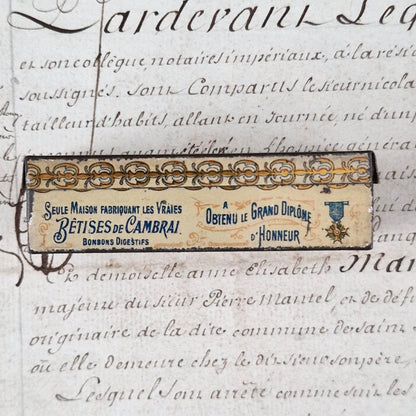 Pardevant Leq
et son collègue notaires impériaux, a la rési
soussignés. sont Comparus le sieur nicola
tailleur d'habits, allant en journée, né d'un
SEULE MAISON FABRIQUANT LES VRAIES
BÊTISES DE CAMBRAI
BONBONS DIGESTIFS
A
OBTENU LE GRAND DIPLÔME
D'HONNEUR
Et demoiselle anne Elisabeth Man
majeure du sieur Pierre Mantel, et de déf
originaire de la dite commune de sain
où elle demeure chez le dit sieur son père
Lesquel sont arrêté comme suit les